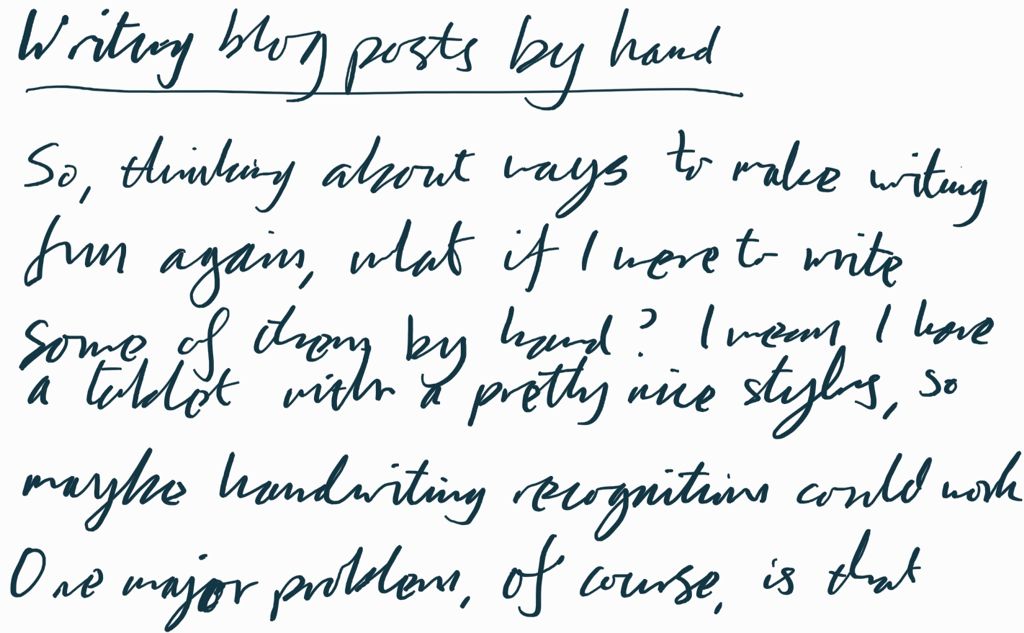 Writing blog posts by hand
So, thinking about ways to make writing
fun again, what if I were to write
some of them by hand? I mean I have
a tablet with a pretty nice stylus, so
maybe handwriting recognition could work
One major problem, of course, is that